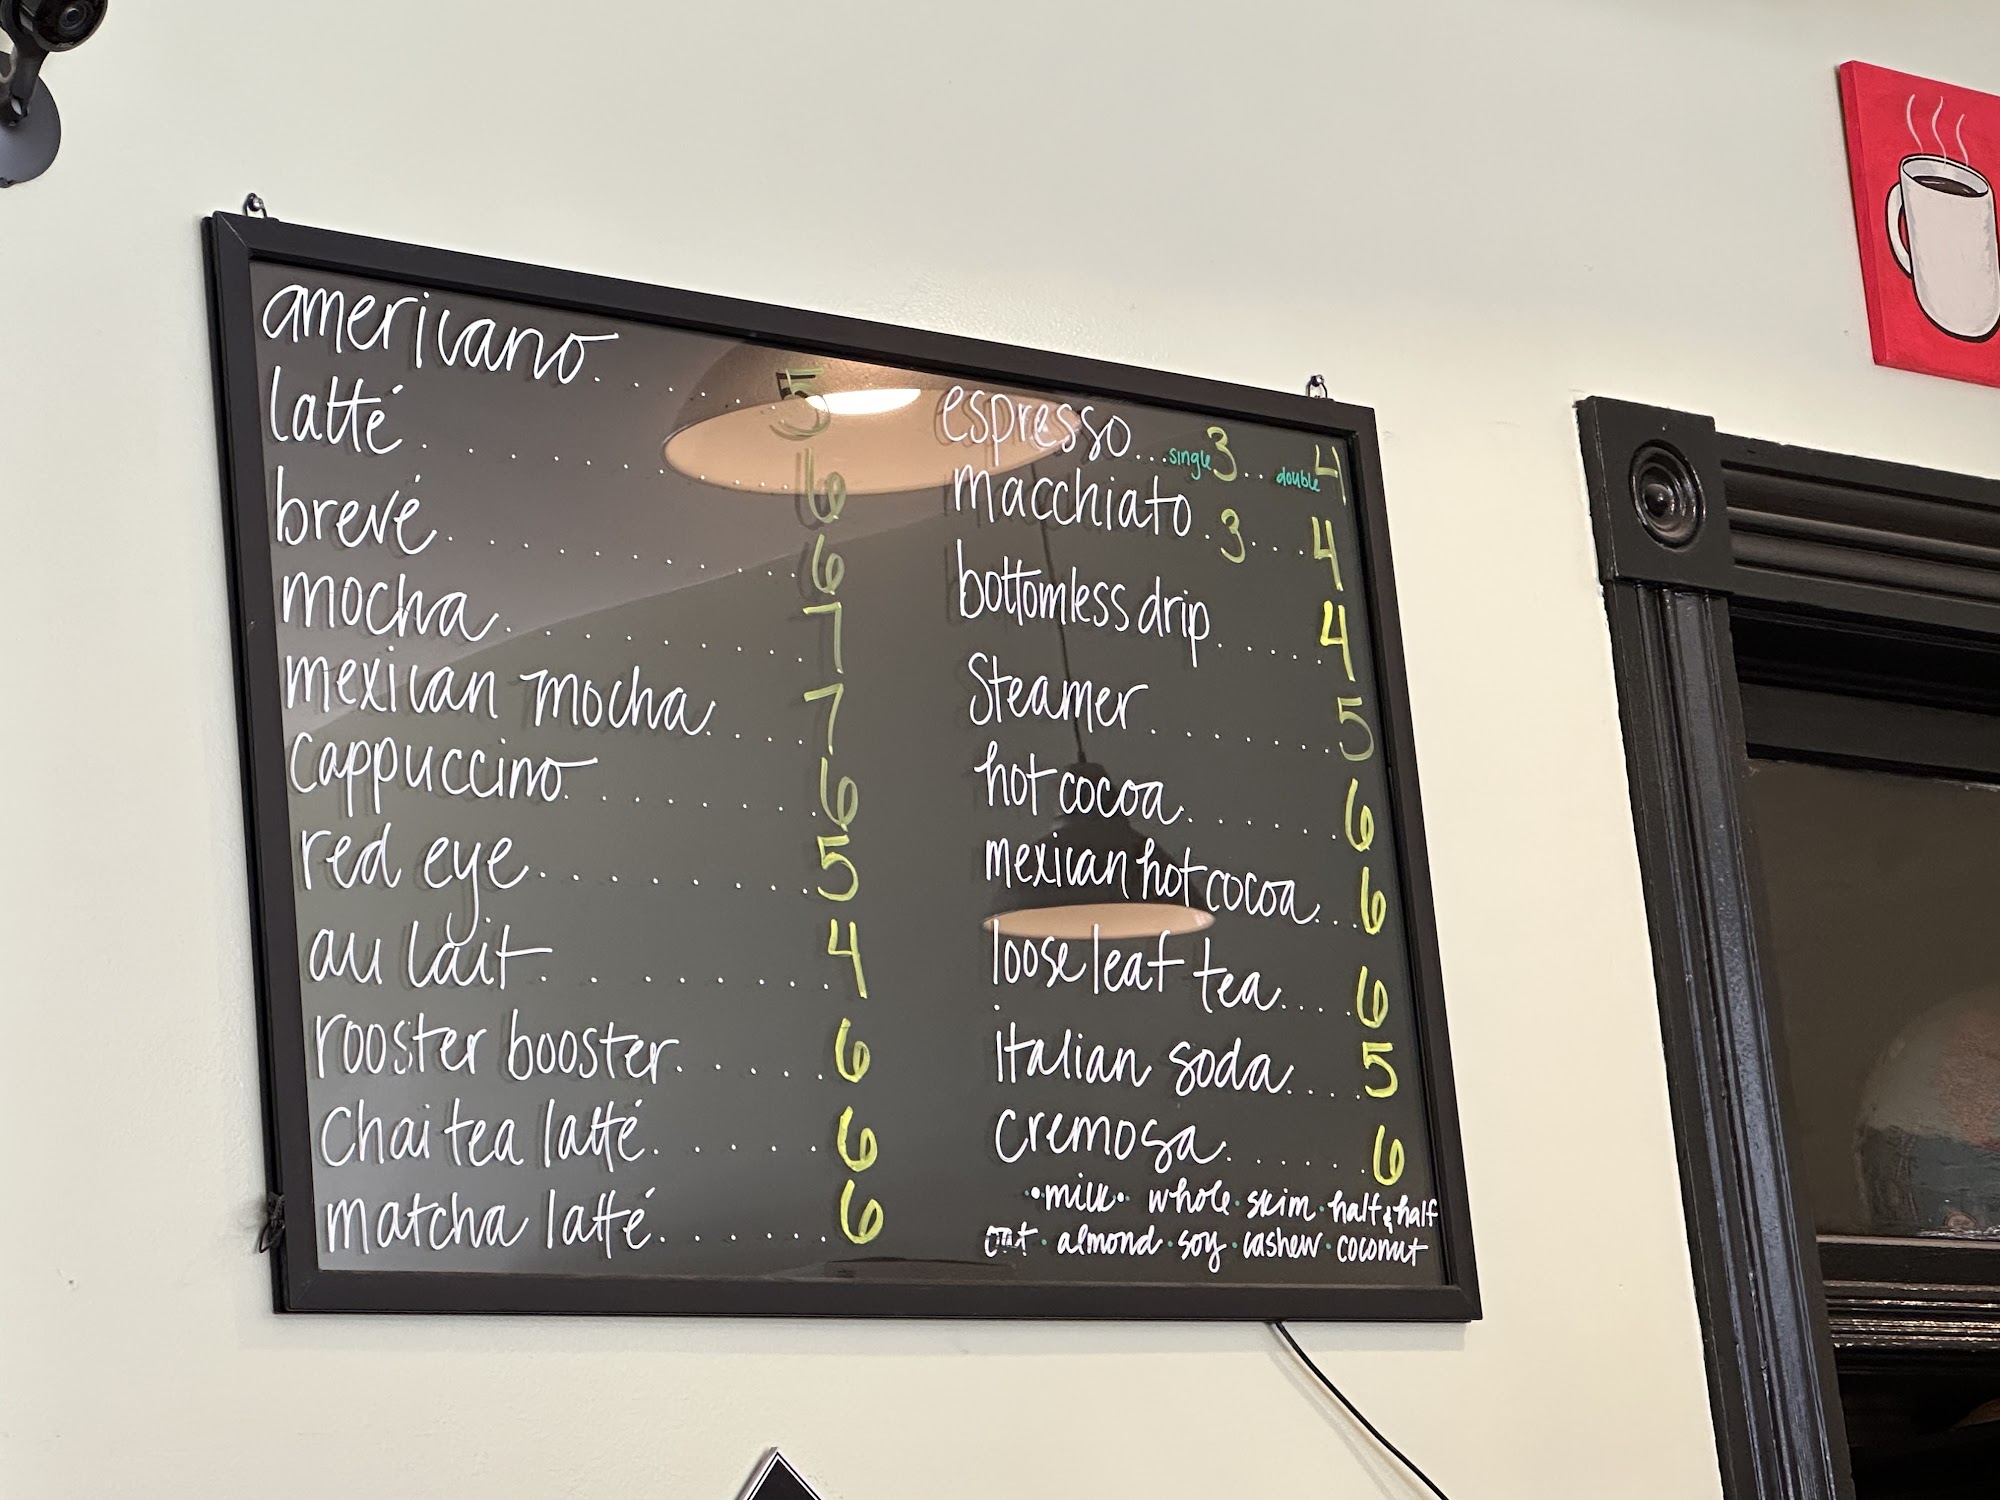 americano..... 5
latté......... 6
brevé......... 6
mocha......... 7
mexican mocha.... 7
cappuccino....... 6
red eye......... 5
au lait........ 4
rooster booster...... 6
chai tea latté...... 6
matcha latté....... 6
espresso...single 3...double 4
macchiato.3....4
bottomless drip..... 4
Steamer....... 5
hot cocoa...... 6
mexican hot cocoa... 6
loose leaf tea.... 6
italian soda.... 5
cremosa...... 6
•milk• whole • skim • half & half
oat • almond • soy • cashew • coconut